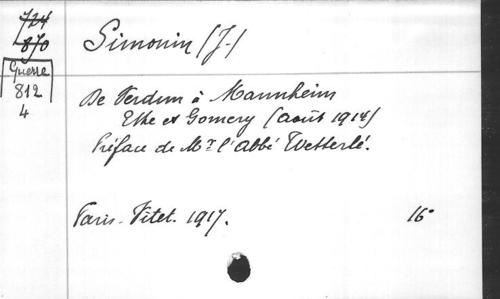 724
870
Guerre
812
4
Simonin (J.)
De Verdun à Mannheim
Ethe et Gomery (Août 1914)
Préface de Mr l'abbé Wetterlé.
Paris - Vitet. 1917.
16°